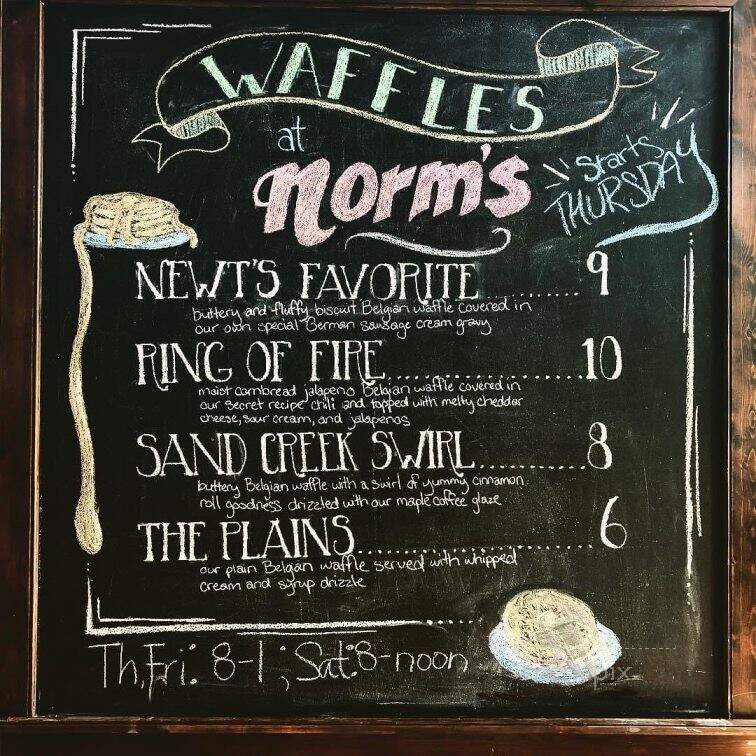 WAFFLES
at
norm's
Starts
THURSDAY
NEWT'S FAVORITE ........ 9
buttery and fluffy biscuit Belgian waffle covered in
our own special German sausage cream gravy
RING OF FIRE ........ 10
moist cornbread jalapeno Belgian waffle covered in
our secret recipe chili and topped with melty cheddar
cheese, sour cream, and jalapenos
SAND CREEK SWIRL ........ 8
buttery Belgian waffle with a swirl of yummy cinnamon
roll goodness drizzled with our maple coffee glaze
THE PLAINS ........ 6
our plain Belgian waffle served with whipped
cream and syrup drizzle
Th, Fri: 8-1; Sat: 8-noon